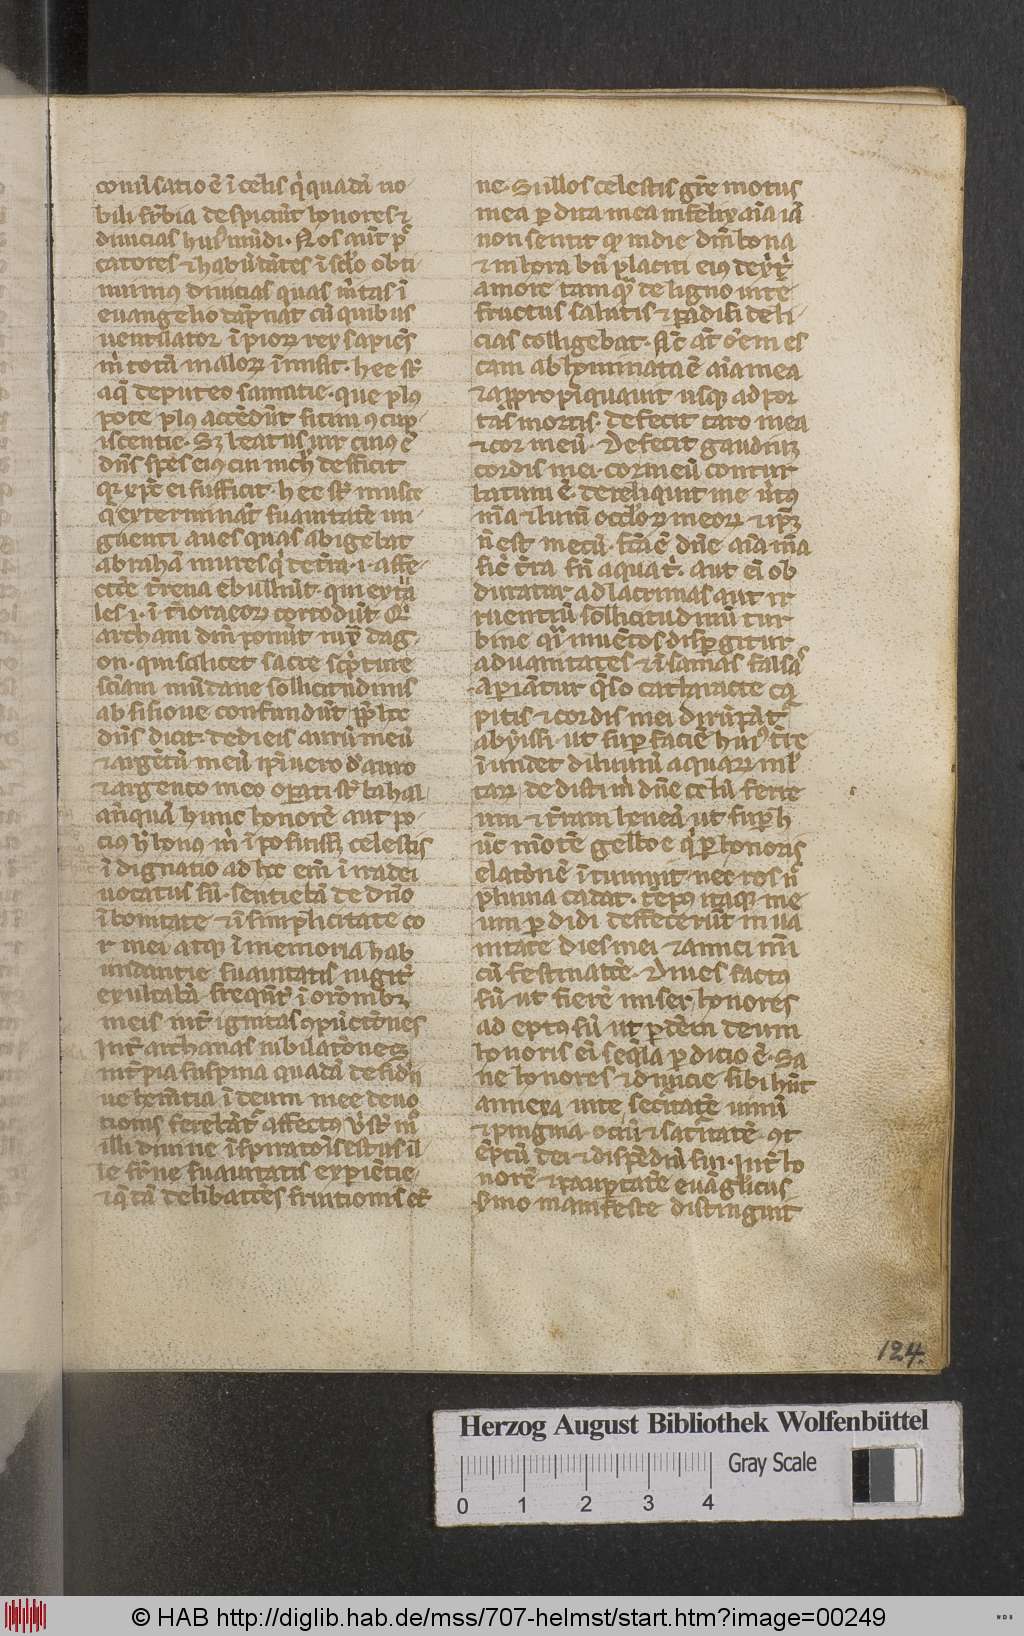 conu̅satio e̅ i̅ celis q̓ quada̅ no-
bili sup̅bia despiciu̅t honores ⁊
diuicias huiꝰ mu̅di. Nos aut̅ p̅
catores ⁊ habu̅da̅tes i̅ sc̅lo obti-
nuimꝰ diuicias quas
euangelio da̅pnat cu̅ quibus
uentilator i̅pioꝝ rex sapie̅s
tota̅ maloꝝ hee st̅
aq̅ de puteo samarie. que plꝰ
pote plꝰ accedu̅t sitim ɔcup
iscentie. Sꝫ beatus uir cuiꝰ e̅
dn̅s spes eiꝰ cui nich̅ defficit
q̅ xp̅c ei sufficit. hee st̅ musce
q̅ exterminant suauitate̅ un-
guenti aues quas abigebat
abraha̅ mures q̓ de t̅ra .i. affe-
ebulliu̅t. qui
les .i. corrodu̅t
archam dn̅i ponu̅t iux̅ dag-
on. qui scilicet sacre sc̅pture
sc̅iam mu̅dane sollicitudinis
ab sisione confundu̅t
dn̅s dicit dedi eis auru̅ meu̅
⁊ arge̅tu̅ meu̅ ip̅i uero d̓ auro
⁊ argento meo op̅ati st̅ bahal
an̅qua̅ hunc honore̅ aut po-
cius honꝰ m̓ i̅posuisꝫ celestis
i̅dignatio ad h̅c eni̅ i̅ ira dei
uocatus su̅. sentieba̅ de dn̅o
i̅ bonitate ⁊ i̅ simplicitate co
r mei atqꝫ i̅ memoria hab
undantie suauitatis iugit̅
exultaba̅ freque̅t̅ i̅ or̅onibꝫ
meis int̅ ignitas ɔpu̅ctiones
Int̅ archanas iubilationes
int̅ pia suspiria quada̅ desid̅ii
uehementia i̅ deum mee deuo
tionis affectꝰ
illi diuine i̅spiratoi̅s estus il
le s̅ne suauitatis expie̅tie
⁊ q̅da̅ delibatio̅es fruitionis et̅
ne. Sullos celestis gr̅e motus
mea pdita mea infelix ai̅a ia̅
non sentit in die dn̅i bona
⁊ in hora placiti eius
amore tamqꝫ de ligno uite
fructus salutis ⁊ pa̅disi deli-
cias colligebat. n̅c at̅ o̅em es
cam abhominata e̅ ai̅a mea
⁊ appropi̅quauit usqꝫ ad por
tas mortis. defecit caro mea
⁊ cor meu̅. defecit gaudiuꝫ
cordis mei. cor meu̅ contur
batum e̅ dereliquit me u̅tꝰ
m̅a ⁊ lum̅ occ̅loꝝ meoꝝ ⁊ ip̅ꝫ
n̅ est mecu̅. fc̅a e̅ dn̅e ai̅a m̅a
sic̅ t̅ra sn̅ aqua t̅. Aut ei̅ ob
duratur ad lacrimas aut ir
ruentiu̅ sollicitudinu̅ tur
bine qͣ inue̅tos disp̅gitur
ad uanitates ⁊ i̅sanias falsas
Ap̅iantur q̅so cataracte ca
pitis ⁊ cordis mei diru̅pa̅t̅
abyssi. ut sup facie̅ huiꝰ t̅re
i̅undet diluuiu̅ aquaꝝ ml̅
taꝝ dedisti m̓ dn̅e celu̅ ferre
um ⁊ t̅ram henea̅ ut sup h̅
u̅c mo̅te̅ gelboe q̓ p honoris
elatione̅ i̅tumuit. nec ros n̅
pluuia cadat. te̅pꝰ itaqꝫ me
um pdidi deffecerunt in ua
nitate dies mei ⁊ anni mi̅
cu̅ festinatio̅e. Diues factꝰ
su̅ ut fiere̅ miser. honores
adeptꝰ su̅ ut pde̅m deum
honoris ei̅ seq̅la pdicio e̅. Sa
ne honores ⁊ diuicie sibi hn̅t
annexa uite sec̅itate̅ uini̅
⁊ pinguia. ociu̅ ⁊ satietate̅. ɔt
e̅ptu̅ dei ⁊ dispe̅diu̅ sui. Int̅ ho
nore̅ ⁊ paup̅tate̅ eua̅glicus
s̅mo manifeste distinguit
124.
Herzog August Bibliothek Wolfenbüttel
Gray Scale
0 1 2 3 4
© HAB http://diglib.hab.de/mss/707-helmst/start.htm?image=00249